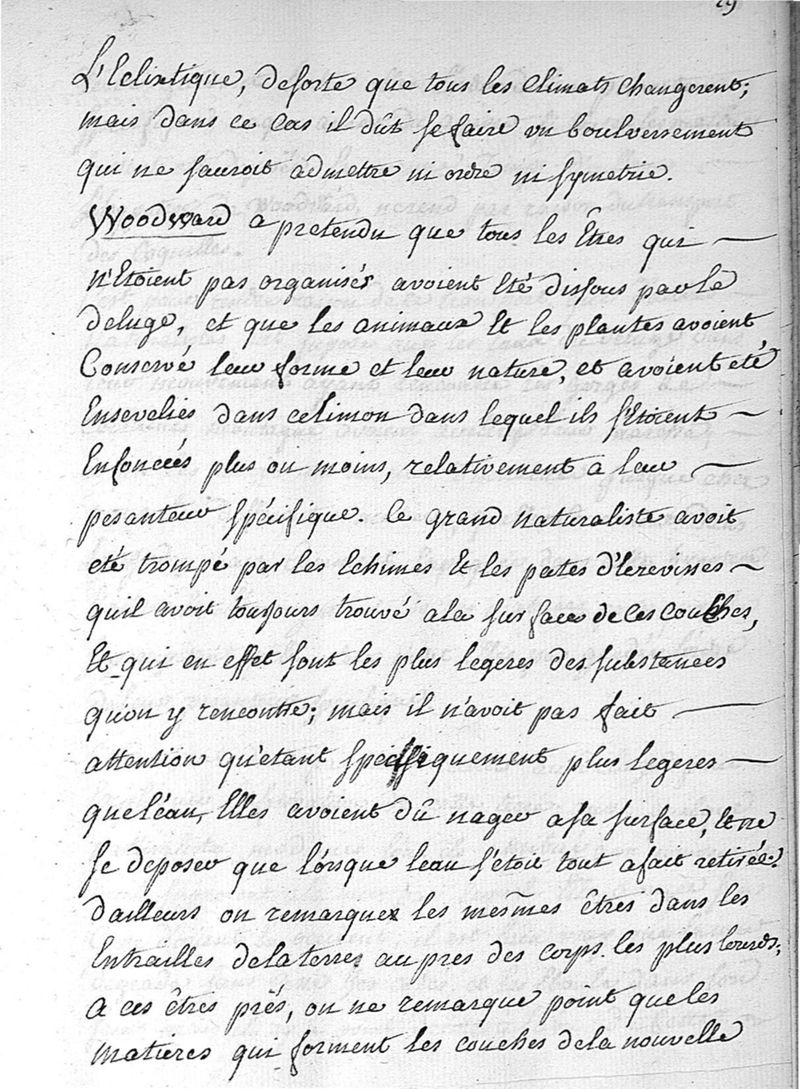 29
L'Ecliptique, desorte que tous les Climats changerent;
mais dans ce cas il dût se faire un boulversement
qui ne sauroit admettre ni ordre ni symetrie.
Woodward a pretendu que tous les Êtres qui —
n'Etoient pas organisés avoient été dissous par le
deluge, et que les animaux Et les plantes avoient
Conservé leur forme et leur nature, et avoient eté
Ensevelies dans ce limon dans lequel ils s'Etoient —
Enfoncées plus ou moins, relativement a leur —
pesanteur spécifique. Ce grand naturaliste avoit
eté trompé par les Echines Et les pates d'Ecrevisses —
quil avoit toujours trouvé a la surface de ces couches,
Et qui en effet sont les plus legeres des substances
qu'on y rencontre; mais il n'avoit pas fait —
attention qu'étant specifiquement plus legeres —
que l'éau, Elles avoient dû nager a sa surface, Et ne
se deposer que lorsque l'eau s'étoit tout a fait retirée.
d'ailleurs on remarque les mesmes êtres dans les
Entrailles de la terre, au pres des corps les plus lourds;
a ces êtres près, on ne remarque point que les
matieres qui forment les couches de la nouvelle